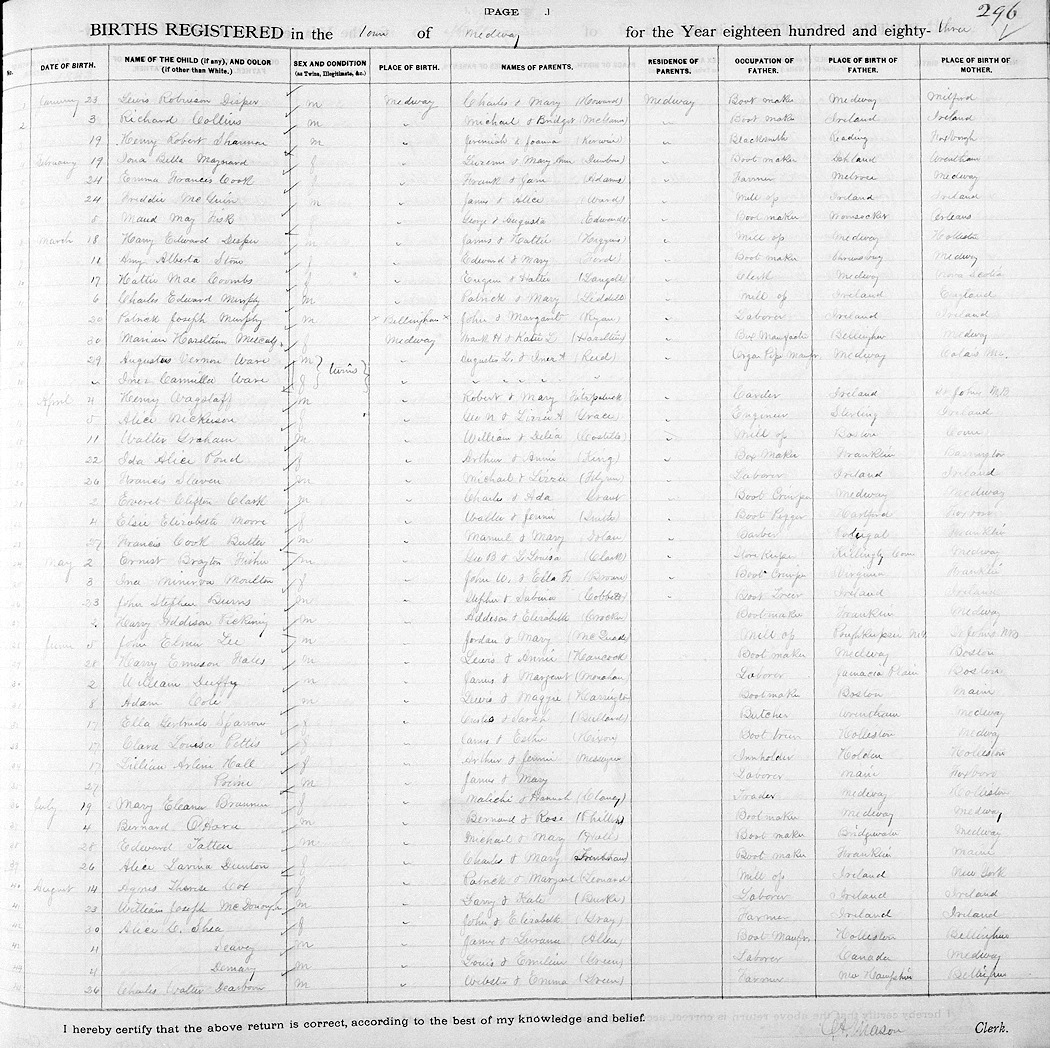 PAGE 296
BIRTHS REGISTERED in the Town of Medway for the Year eighteen hundred and eighty-three
No. DATE OF BIRTH. NAME OF THE CHILD (if any), AND COLOR (if other than White.) SEX AND CONDITION (as Twins, Illegitimate, &c.) PLACE OF BIRTH. NAMES OF PARENTS. RESIDENCE OF PARENTS. OCCUPATION OF FATHER. PLACE OF BIRTH OF FATHER. PLACE OF BIRTH OF MOTHER.
January 23 Lewis Robinson Draper m Medway Charles & Mary (Howard) Medway Boot maker Medway Milford
3 Richard Collins m " Michael & Bridget " Boot maker Ireland Ireland
19 Henry Robert Shannon m " Jeremiah & Joanna (Kerwin) " Blacksmith Reading Roxborough
February 19 Iona Bella Maynard f " Mary Ann " Boot maker Ashland Wrentham
24 Emma Frances Cook f " Frank & Jane (Adams) " Farmer Melrose Medway
24 Freddie McGuin m " James & Alice (Ward) " Mill op Ireland Ireland
8 Maud May Fisk f " George & Augusta (Edwards) " Boot maker Woonsocket Orleans
March 18 Harry Edward Draper m " James & Hattie (Higgins) " Mill op Medway Holliston
11 Amy Alberta Stone f " Edward & Mary (Ford) " Boot maker Shrewsbury Medway
17 Hattie Mae Coombs f " Eugene & Hattie " Clerk Medway Nova Scotia
6 Charles Edward Murphy m " Patrick & Mary (Liddell) " Mill op Ireland England
20 Patrick Joseph Murphy m × Bellingham × John & Margaret (Ryan) " Laborer Ireland Ireland
30 Marian Hazeltine Metcalf f Medway Frank H & Katie L (Hazeltine) " Box Manufactr Bellingham Medway
29 Augustus Vernon Ware m twins " Augustus L. & Inez A (Reed) " Organ Pipe Manfr. Medway Calais Me.
" Inez Camilla Ware f " " " " " "
April 4 Henry Wagstaff m " Robert & Mary Fitzpatrick " Carder Ireland St Johns N.B.
5 Alice Nickerson f " Geo N & Lizzie A (Grace) " Engineer Sterling Ireland
11 Walter Graham m " William & Delia (Costello) " Mill op Boston Conn
22 Ida Alice Pond f " Arthur & Annie (King) " Box Maker Franklin Barrington
26 Francis Slaven m " Michael & Lizzie " Laborer Ireland Ireland
2 Everet Clifton Clark m " Charles & Ada Grant " Boot Crimper Medway Medway
4 Elsie Elizabeth Moore f " Walter & Jennie (Smith) " Boot Pegger Hartford
27 Francis Cook Butler m " Manuel & Mary Dolan " Barber Portugal Franklin
May 2 Ernest Brayton Fisher m " Geo B & G Louisa (Clark) " Killingly Conn Medway
3 Ina Minerva Moulton f " John W. & Ella F (Brown) " Boot Crimper Virginia Franklin
23 John Stephen Burns m " Stephen & Sabina (Cobbett) " Boot Ireland Ireland
2 Harry Addison Pickering m " Addison & Elizabeth (Crooks) Bootmaker Franklin Medway
June 5 John Elmer Lee m " Jordan & Mary (McQuade) Mill op Poughkeepsie NY St Johns NB
28 Harry Emerson Fales m " Lewis & Annie (Hancock) Boot maker Medway Boston
2 William Duffy m " James & Margaret (Monahan) Laborer Jamaica Plain Boston
8 Adam Cole m " Lewis & Maggie (Harrington) Bootmaker Boston Maine
17 Ella Gertrude Sparrow f " & Sarah (Bullard) Butcher Wrentham Medway
17 Clara Louisa Pettis f " James & Esther (Hixon) Boot Holliston Medway
17 Lillian Arlene Hall f " Arthur & Jennie Messenger Innholder Holden Holliston
27 m " James & Mary Laborer Maine Foxboro
July 19 Mary Eleanor Brannan f " Malichi & Hannah (Clancy) Trader Medway Holliston
4 Bernard O'Hara m " Bernard & Rose (Phillips) Bootmaker Medway Medway
28 Edward Fallen m " Michael & Mary (Hall) Boot maker Bridgewater Medway
26 Alice Lavina Dunton f " Charles & Mary Boot maker Franklin Maine
August 14 Agnes Therese Cox f " Patrick & Margaret (Leonard) Mill op Ireland New York
23 William Joseph McDonough m " & Kate (Burke) Laborer Ireland Ireland
30 Alice C. Shea f " John & Elizabeth (Gray) Farmer Ireland Ireland
11 Seavey m " James & Lurana (Allen) Boot Manfr. Holliston Bellingham
4 Demary m " Louis & Emelien (Green) Laborer Canada Medway
26 Charles Walter Dearborn m " Webster & Emma (Green) Farmer New Hampshire Bellingham
I hereby certify that the above return is correct, according to the best of my knowledge and belief.
Mason Clerk.